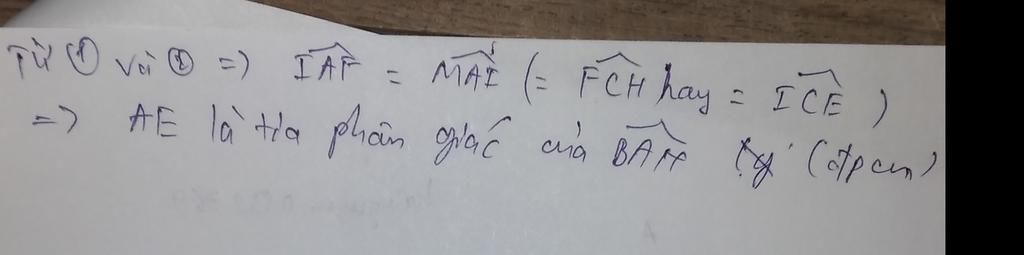 Từ ① và ② => IAF = MAI (= FCH hay = ICE)
=> AE là tia phân giác của BAH (đpcm)